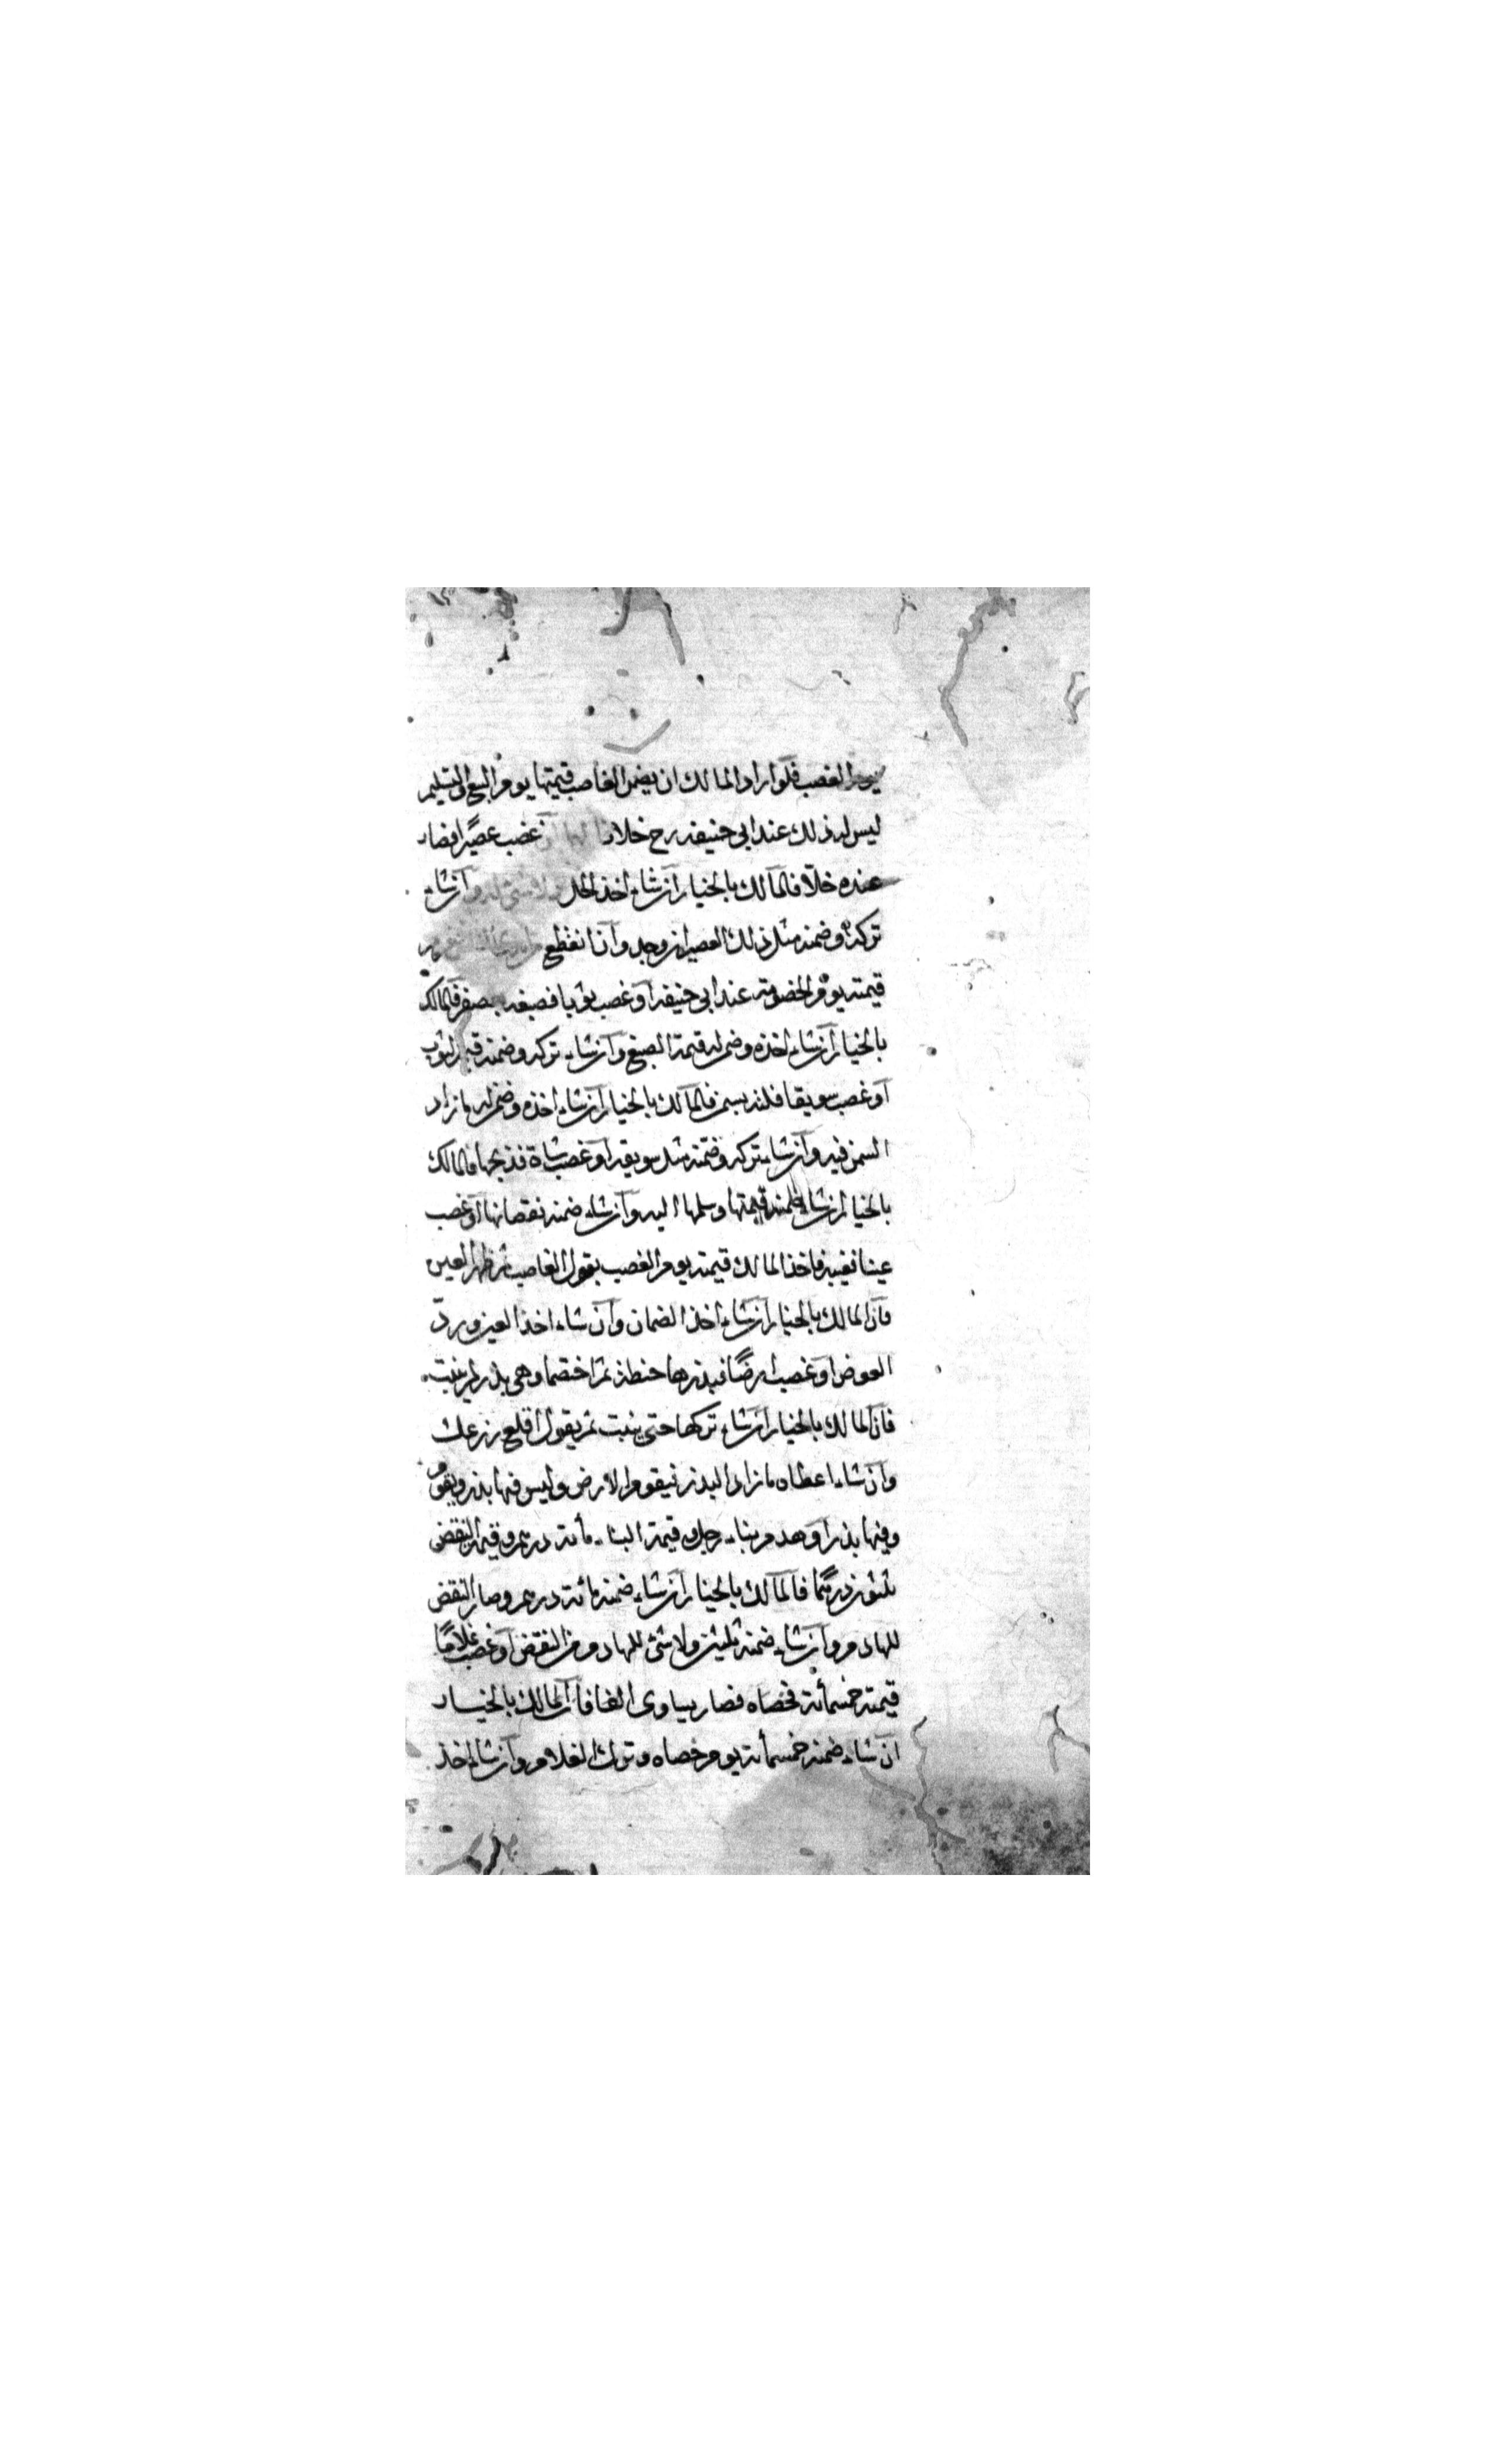 يوم الغصب فلو اراد المالك ان يضمن الغاصب قيمتها يوم البيع والتسليم
ليس له ذلك عند ابي حنيفه رح خلافا لهما او غصب عصيرًا فصار
عنده خلّا فالمالك بالخيار ان شاء اخذ الخل ولا شئ له وان شاء
تركه وضمنه مثل ذلك العصير ان وجد وان انقطع
قيمته يوم الخصومة عند ابي حنيفه او غصب ثوبا فصبغه بعصفر فالمالك
بالخيار ان شاء اخذه وضمن له قيمة الصبغ وان شاء تركه وضمنه قيمة الثوب
او غصب سويقا فلته بسمن فالمالك بالخيار ان شاء اخذه وضمن له ما زاد
السمن فيه وان شاء تركه وضمّنه مثل سويقه او غصب شاة فذبحها فالمالك
بالخيار ان شاء ضمنه قيمتها وسلمها اليه وان شاء ضمنه نقصانها او غصب
عينا فغيبه فاخذ المالك قيمته يوم الغصب بقول الغاصب ثم ظهر العين
فان المالك بالخيار ان شاء اخذ الضمان وان شاء اخذ العين وردّ
العوض او غصب ارضًا فبذرها حنطة ثم اختصما وهي بذر لم ينبت
فان المالك بالخيار ان شاء تركها حتى ينبت ثم يقول اقلع زرعك
وان شاء اعطاه ما زاد البذر فيقوم الارض وليس فيها بذر ويقوم
وفيها بذر او هدم بناء رجل وقيمة البناء مأئة درهم وقيمة النقض
ثلثون درهمًا فالمالك بالخيار ان شاء ضمنه مائة درهم وصار النقض
للهادم وان شاء ضمنه ولا شئ للهادم من النقض او غصب غلامًا
قيمته خمسمأئة فخصاه فصار يساوى الفا فان المالك بالخيار
ان شاء ضمنه خمسمأئة يوم خصاه وترك الغلام وان شاء اخذ